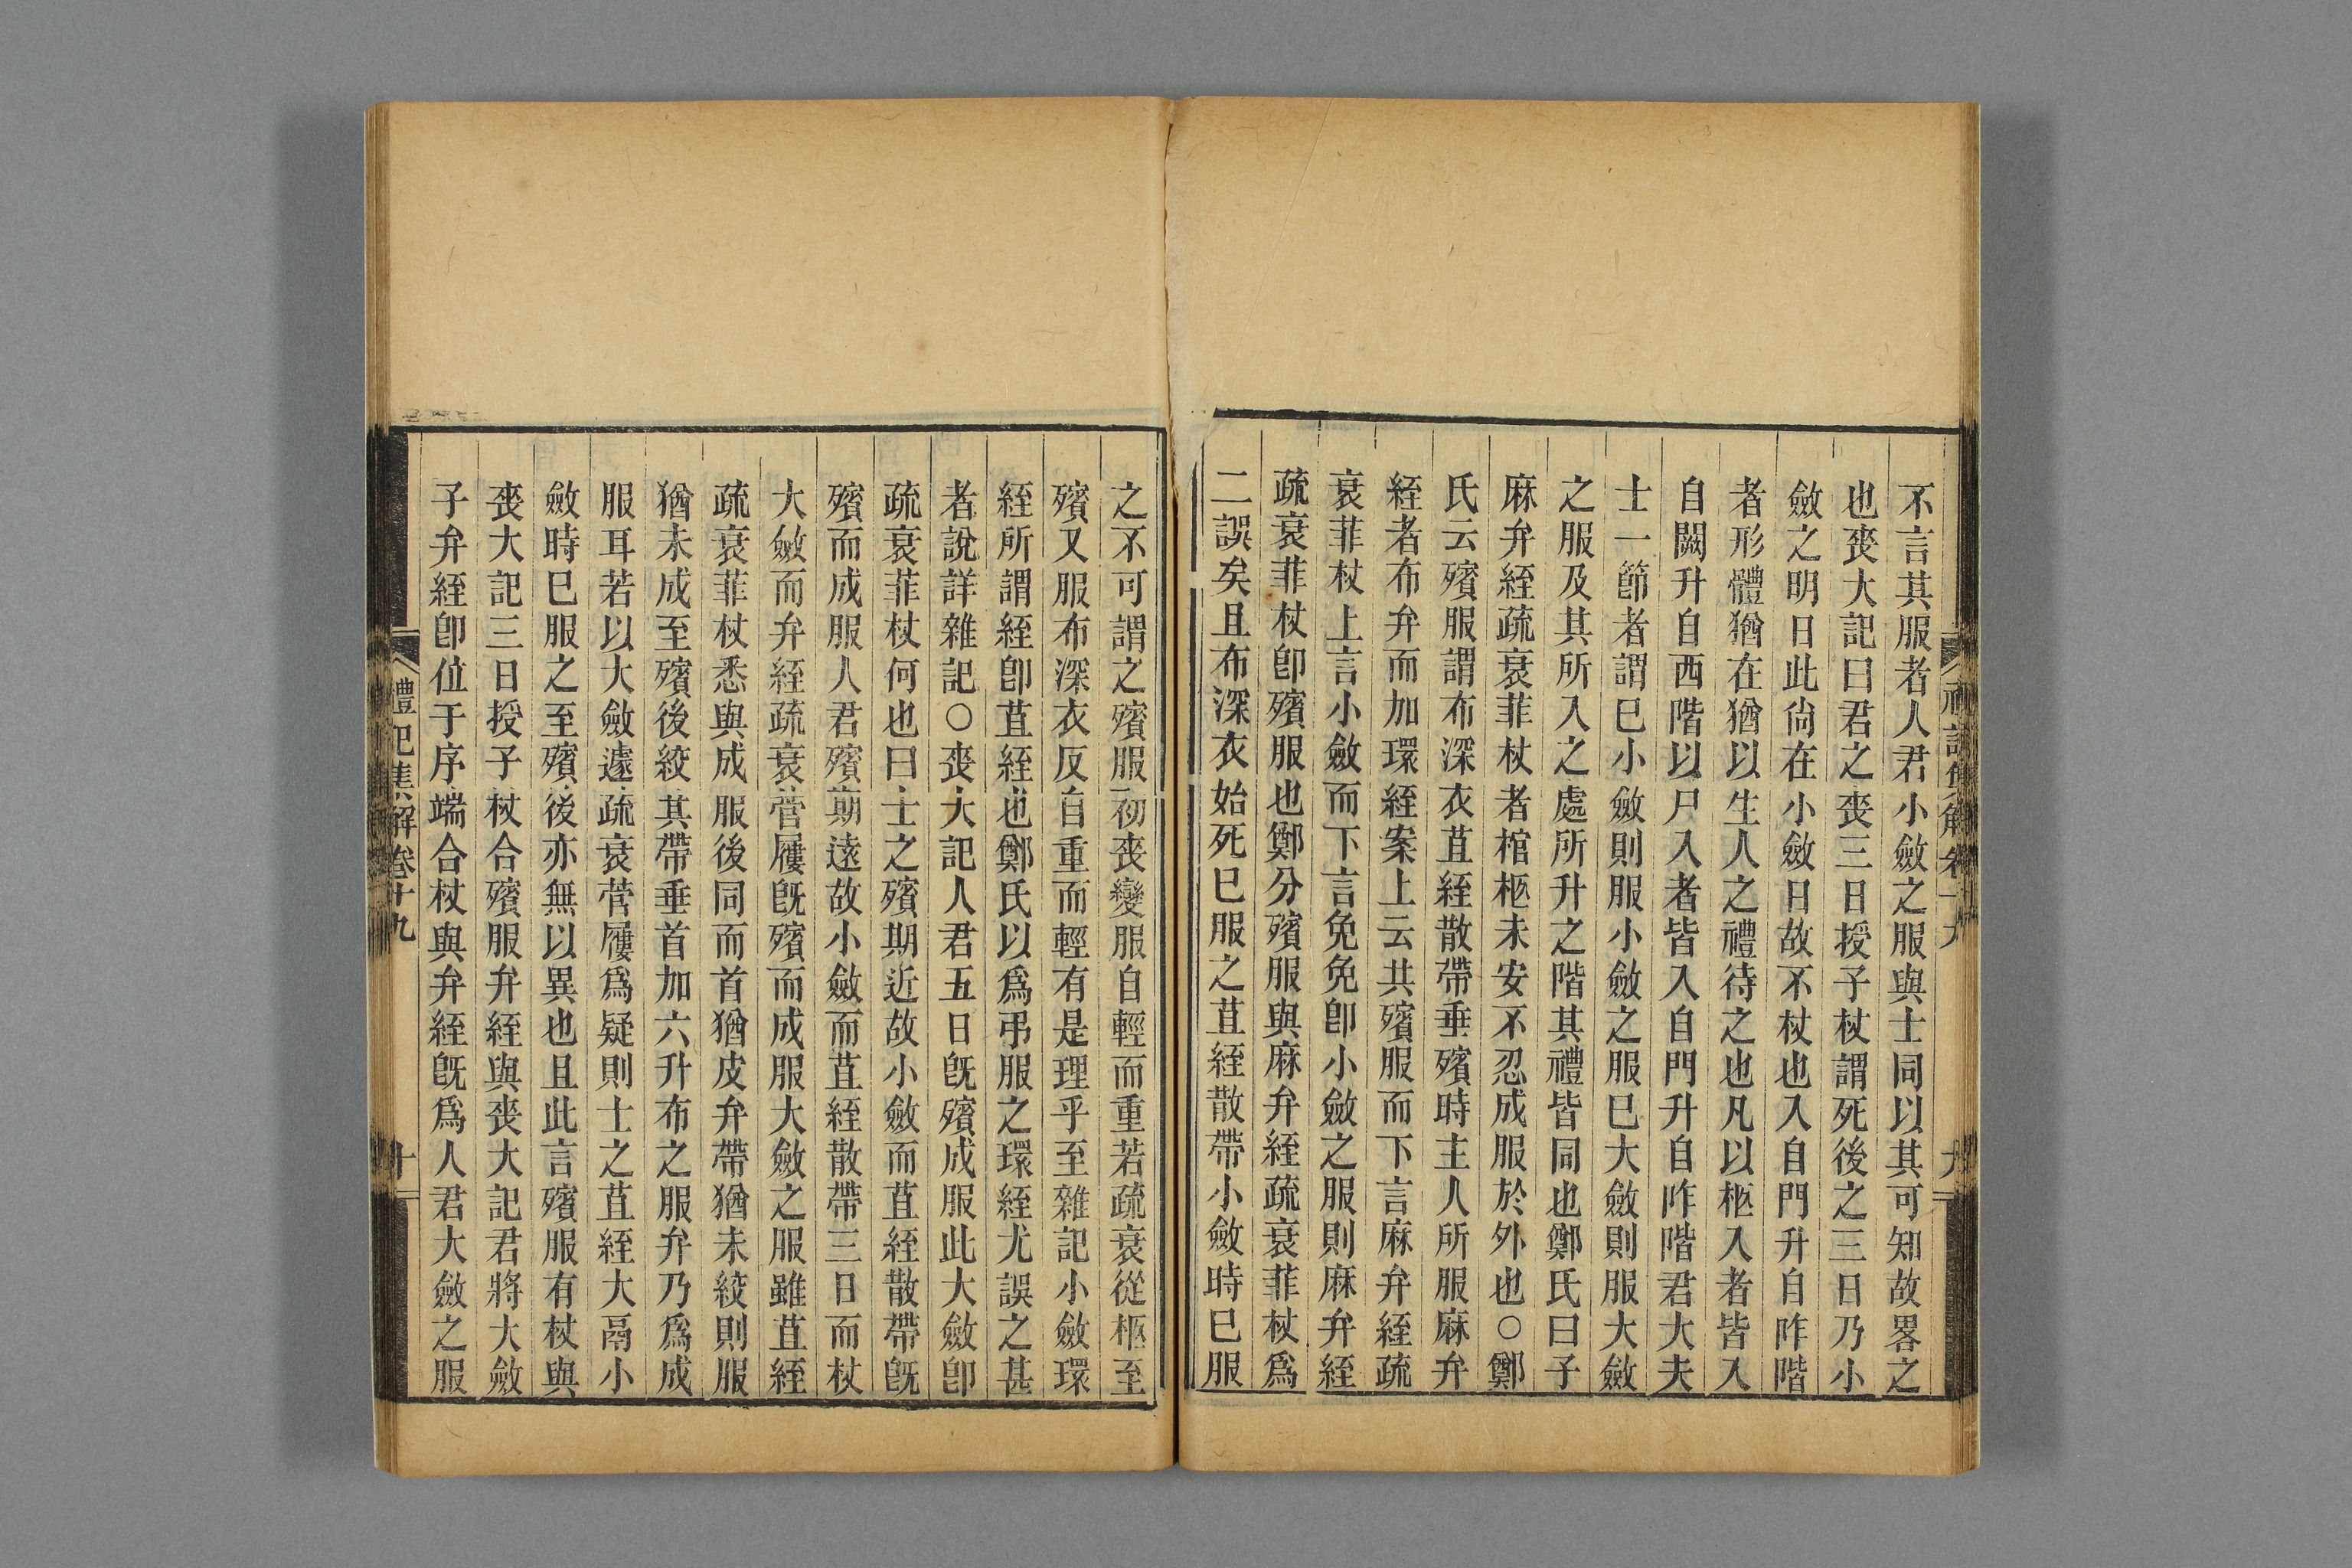 不言其服者人君小斂之服與士同以其可知故畧之
也喪大記曰君之喪三日授子杖謂死後之三日乃小
斂之明日此尙在小斂日故不杖也入自門升自阼階
者形體猶在猶以生人之禮待之也凡以柩入者皆入
自闕升自西階以尸入者皆入自門升自阼階君大夫
士一節者謂巳小斂則服小斂之服巳大斂則服大斂
之服及其所入之處所升之階其禮皆同也鄭氏曰子
麻弁絰疏衰菲杖者棺柩未安不忍成服於外也○鄭
氏云殯服謂布深衣苴絰散帶垂殯時主人所服麻弁
絰者布弁而加環絰案上云共殯服而下言麻弁絰疏
衰菲杖上言小斂而下言免免卽小斂之服則麻弁絰
疏衰菲杖卽殯服也鄭分殯服與麻弁絰疏衰菲杖爲
二誤矣且布深衣始死巳服之苴絰散帶小斂時巳服
之不可謂之殯服初喪變服自輕而重若疏衰從柩至
殯又服布深衣反自重而輕有是理乎至雜記小斂環
絰所謂絰卽苴絰也鄭氏以爲弔服之環絰尤誤之甚
者說詳雜記○喪大記人君五日旣殯成服此大斂卽
疏衰菲杖何也曰士之殯期近故小斂而苴絰散帶旣
殯而成服人君殯期遠故小斂而苴絰散帶三日而杖
大斂而弁絰疏衰菅屨旣殯而成服大斂之服雖苴絰
疏衰菲杖悉與成服後同而首猶皮弁帶猶未絞則服
猶未成至殯後絞其帶垂首加六升布之服弁乃爲成
服耳若以大斂遽疏衰菅屨爲疑則士之苴絰大鬲小
斂時巳服之至殯後亦無以異也且此言殯服有杖與
喪大記三日授子杖合殯服弁絰與喪大記君將大斂
子弁絰卽位于序端合杖與弁絰旣爲人君大斂之服
禮記集解卷十九
十